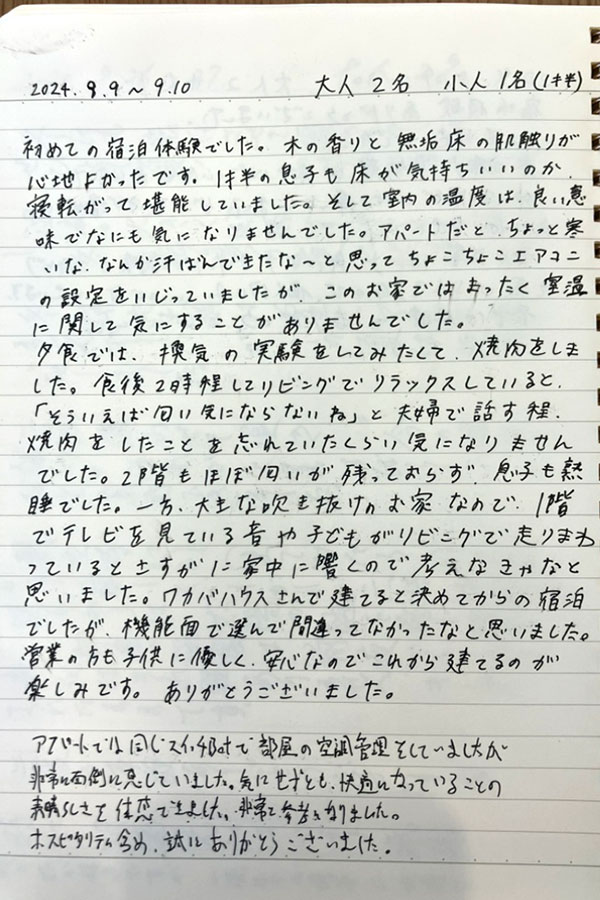 2024. 9.9 ~ 9.10 大人 2名 小人 1名(1才半)
初めての宿泊体験でした。木の香りと無垢床の肌触りが
心地よかったです。1才半の息子も床が気持ちいいのか、
寝転がって堪能していました。そして室内の温度は、良い意
味でなにも気になりませんでした。アパートだと、ちょっと寒
いな、なんか汗ばんできたな〜と思ってちょこちょこエアコン
の設定をいじっていましたが、このお家ではまったく室温
に関して気にすることがありませんでした。
夕食では、換気の実験をしてみたくて、焼肉をしま
した。食後2時程してリビングでリラックスしていると、
「そういえば匂い気にならないね」と夫婦で話す程、
焼肉をしたことを忘れていたくらい気になりません
でした。2階もほぼ匂いが残っておらず、息子も熟
睡でした。一方、大きな吹き抜けのお家なので、1階
でテレビを見ている音や子どもがリビングで走りまわ
っているとさすがに家中に響くので考えなきゃなと
思いました。ワカバハウスさんで建てると決めてからの宿泊
でしたが、機能面で選んで間違ってなかったなと思いました。
営業の方も子供に優しく、安心なのでこれから建てるのが
楽しみです。ありがとうございました。
アパートでは同じスイッチBotで部屋の空調管理をしていましたが
非常に面倒に感じていました。気にせずとも、快適になっていることの
素晴らしさを体感できました。非常に参考になりました。
ホスピタリティ含め、誠にありがとうございました。